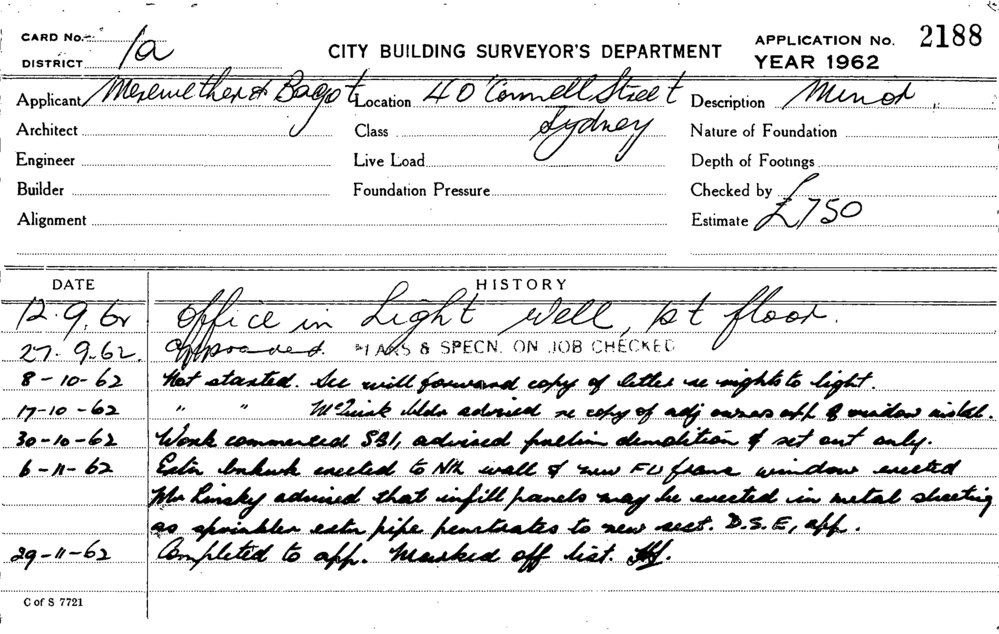 CARD No. 1a
CITY BUILDING SURVEYOR'S DEPARTMENT
APPLICATION No. 2188
DISTRICT
YEAR 1962
Applicant Merewether & Bagot Location 4 O'Connell Street Description Minor
Architect Class Sydney Nature of Foundation
Engineer Live Load Depth of Footings
Builder Foundation Pressure Checked by
Alignment Estimate £750
DATE HISTORY
12.9.62 Office in Light Well, 1st floor.
27.9.62. Approved. PLANS & SPECN. ON JOB CHECKED
8-10-62 Not started. Sec will forward copy of letter re rights to light.
17-10-62 " " advised re copy of adj owners app of window instal.
30-10-62 Work commenced SBI, advised prelim demolition & set out only.
6-11-62 Extn bwk erected to Nth wall & new FU frame window erected
Mr Linsky advised that infill panels may be erected in metal sheeting
as sprinkler extn pipe penetrates to new sect. D.S.E, app.
29-11-62 Completed to app. Marked off list.
C of S 7721